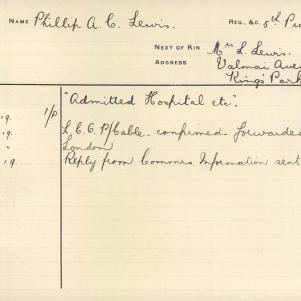 NAME Phillip A. C. Lewis. REG., &C. 5th
NEXT OF KIN Mrs L. Lewis.
ADDRESS Valmai
King's Park
"Admitted Hospital etc".
.19. 1/P L.C.C. P/Cable. confirmed. forwarded
.19. London
.19. Reply from Commrs. Information sent